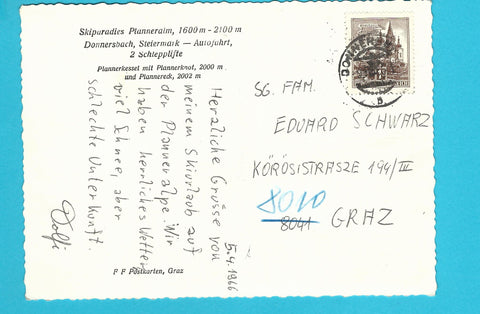 Skiparadies Planneralm, 1600 m - 2100 m
Donnersbach, Steiermark — Autofahrt,
2 Schlepplifte
Plannerkessel mit Plannerknot, 2000 m
und Plannereck, 2002 m
5.4.1966
Herzliche Grüsse von
meinem Skiurlaub auf
der Planneralpe. Wir
haben herrliches Wetter
viel Schnee, aber
schlechte Unterkunft.
Dolfi
F F Postkarten, Graz
SG. FAM.
EDUARD SCHWARZ
KÖRÖSISTRASZE 194/III
8010
8041 GRAZ